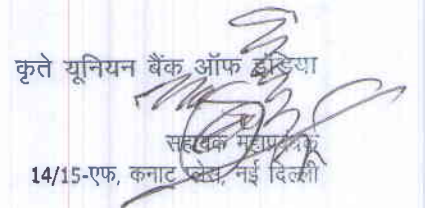 कृते यूनियन बैंक ऑफ इंडिया
सहायक महाप्रबंधक
14/15-एफ, कनाट प्लेस, नई दिल्ली